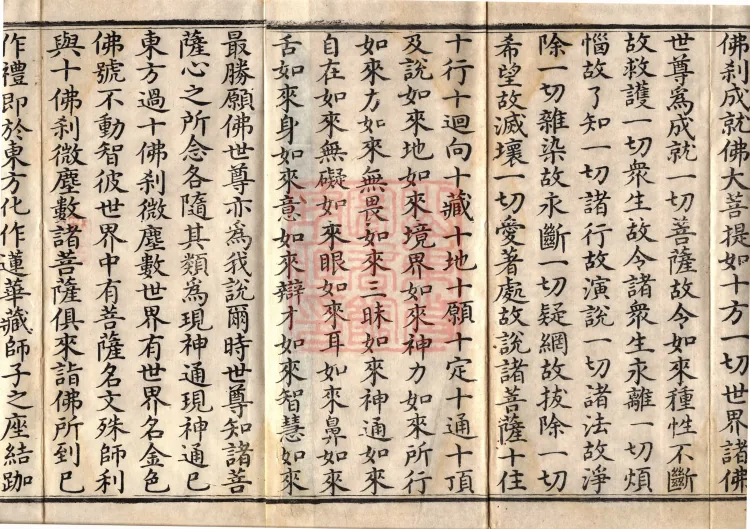 佛刹成就佛大菩提如十方一切世界諸佛
世尊爲成就一切菩薩故令如來種性不斷
故救護一切衆生故令諸衆生永離一切煩
惱故了知一切諸行故演說一切諸法故淨
除一切雜染故永斷一切疑網故拔除一切
希望故滅壞一切愛著處故說諸菩薩十住
十行十迴向十藏十地十願十定十通十頂
及說如來地如來境界如來神力如來所行
如來力如來無畏如來三昧如來神通如來
自在如來無礙如來眼如來耳如來鼻如來
舌如來身如來意如來辯才如來智慧如來
最勝願佛世尊亦爲我說爾時世尊知諸菩
薩心之所念各隨其類爲現神通現神通已
東方過十佛刹微塵數世界有世界名金色
佛號不動智彼世界中有菩薩名文殊師利
與十佛刹微塵數諸菩薩俱來詣佛所到已
作禮即於東方化作蓮華藏師子之座結跏